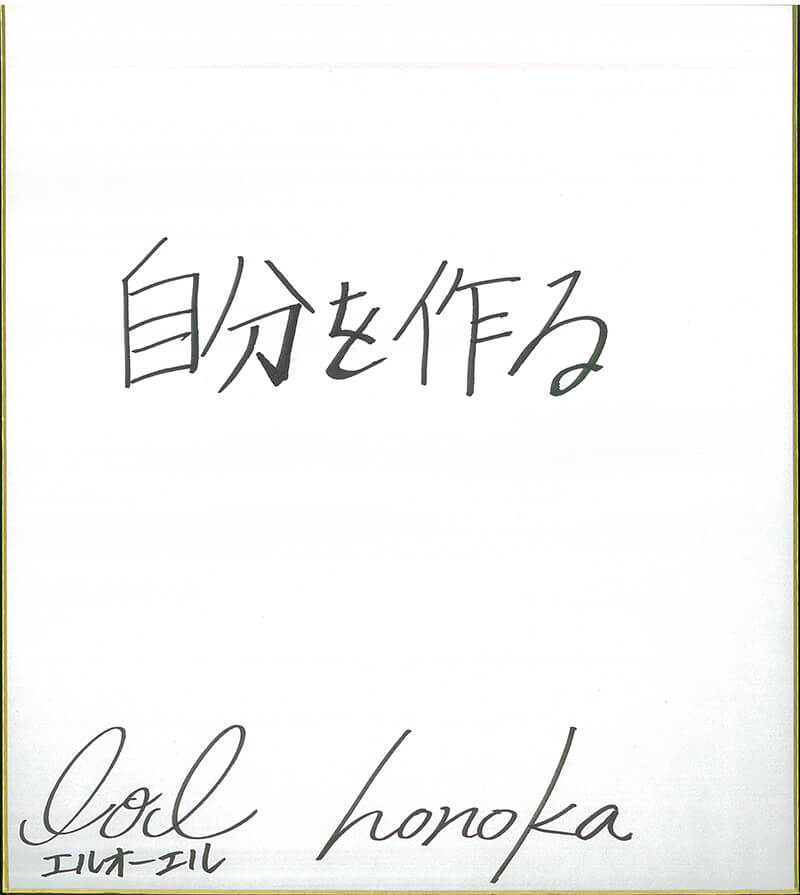 自分を作る
lol honoka
エルオーエル